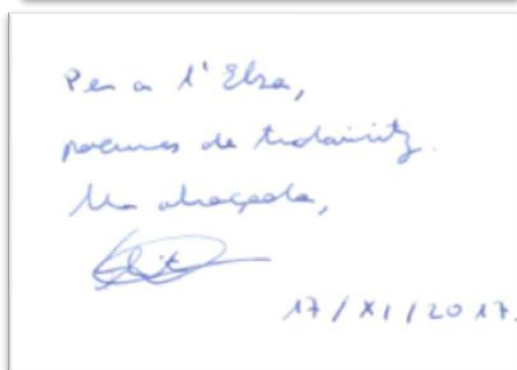 Per a l'Elsa,
poemes de trobairitz.
Una abraçada,
17/XI/2017.